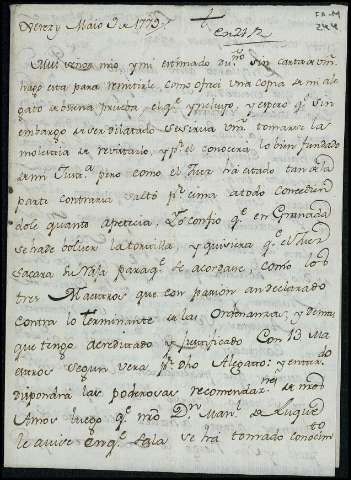 Xerez y Maio 9 de 1779
Mui señor mio y mi estimado dueño sin carta de Vm.
hago esta para remitirle como ofreci una copia de mi ale
gato de buena prueba, el qe. yncluyo, y espero qe. sin
embargo de ser dilatado se servira Vm. tomarse la
molestia de revistarlo, y pr. el conocerá lo bien fundado
de mi Justa. pero como el Juez ha estado tan de la
parte contraria saltó pr. cima de todo concedien
dole quanto apetecia, Yo confio qe. en Granada
se ha de bolver la tortilla, y quisiera qe. el Juez
sacara su para qe. se acordase, como los
tres Maestros que con pasion an declarado
contra lo terminante de las Ordenanzas, y demas
que tengo acreditado y justificado con 13 Ma
estros segun vera pr. dho Alegato: y entre tto
dispondrá las poderosas recomendaznes. de ntros
Amos luego qe. ntro Dn. Manl. de Luque
le avise en qe. Sala se há tomado conocimto